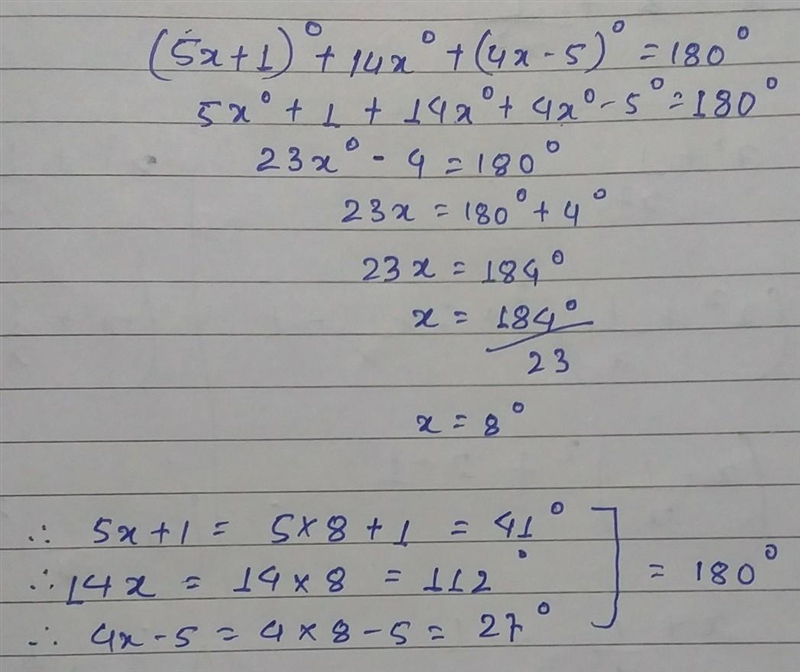 (5x+1)° + 14x° + (4x-5)° = 180°
5x° + 1 + 14x° + 4x° - 5° = 180°
23x° - 4 = 180°
23x = 180° + 4°
23x = 184°
x = 184°
23
x = 8°
∴ 5x+1 = 5×8+1 = 41°
∴ 14x = 14×8 = 112° = 180°
∴ 4x-5 = 4×8-5 = 27°